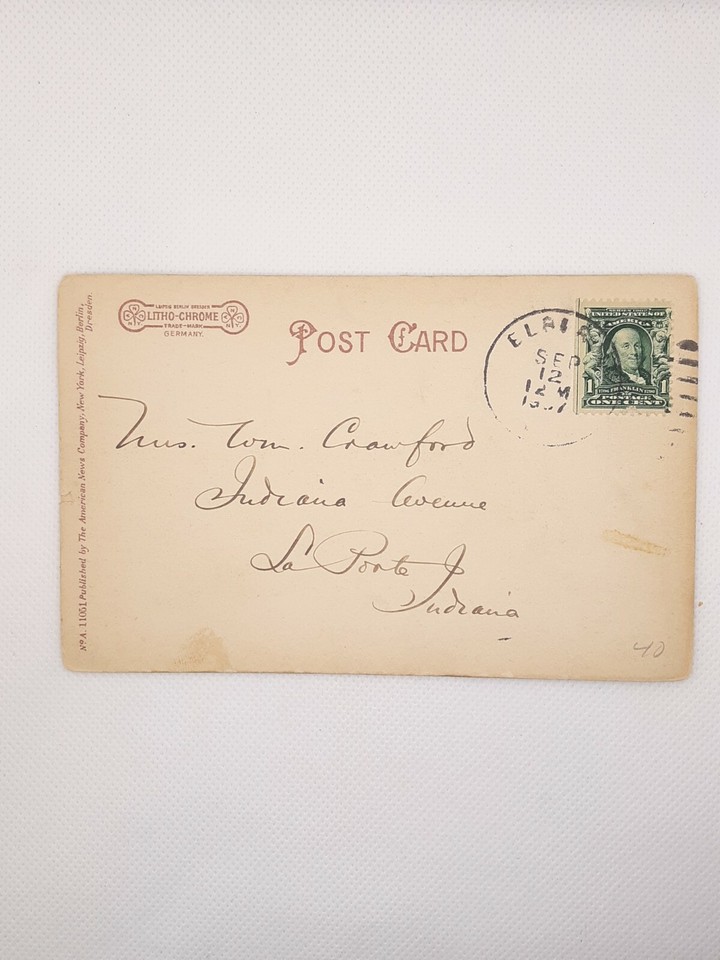 LEIPZIG BERLIN DRESDEN
LITHO-CHROME
TRADE-MARK.
GERMANY.
POST CARD
SEP
12
12 M
UNITED STATES OF
AMERICA
1 FRANKLIN 1
POSTAGE
ONE CENT
Mrs. Wm. Crawford
Indiana Avenue
La Porte
Indiana
40
No A. 11051 Published by The American News Company, New York, Leipzig, Berlin,
Dresden.